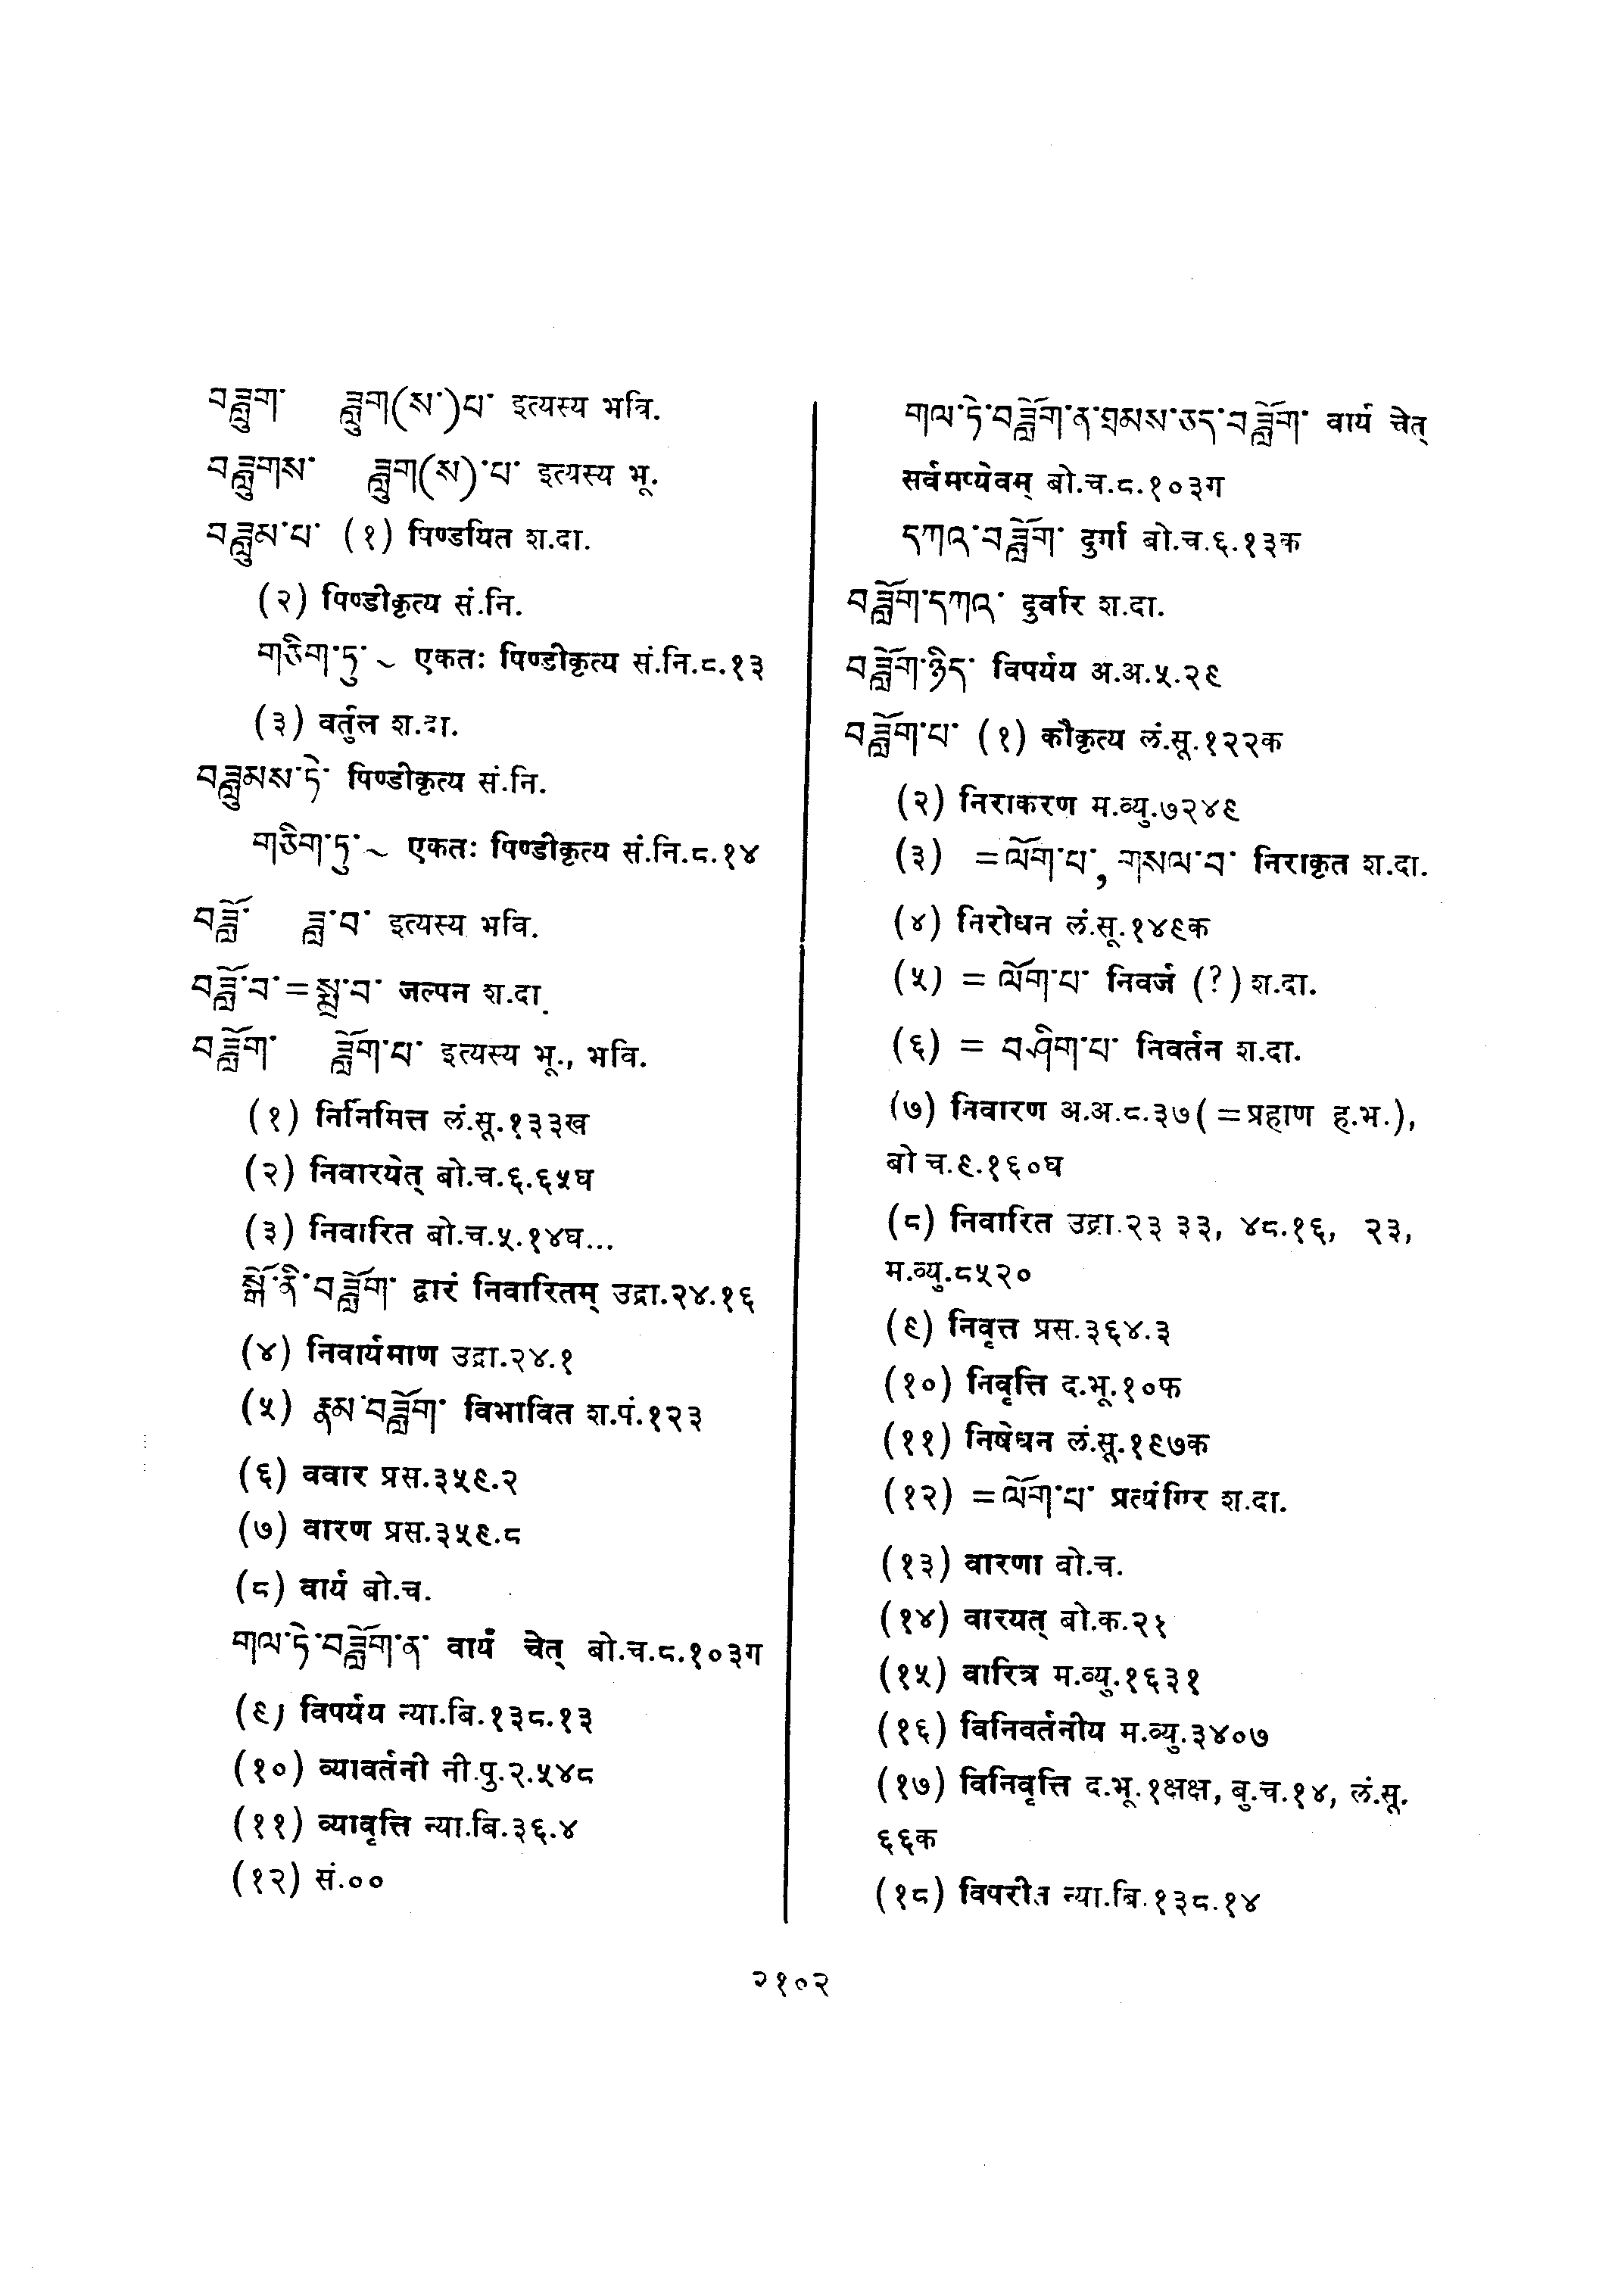 བཟླུག་ ཟླུག(ས་)པ་ इत्यस्य भवि.
བཟླུགས་ ཟླུག(ས)་པ་ इत्यस्य भू.
བཟླུམ་པ་ (१) पिण्डयित श.दा.
(२) पिण्डीकृत्य सं.नि.
གཅིག་ཏུ་ ~ एकतः पिण्डीकृत्य सं.नि.८.१३
(३) वर्तुल श.दा.
བཟླུམས་ཏེ་ पिण्डीकृत्य सं.नि.
གཅིག་ཏུ་ ~ एकतः पिण्डीकृत्य सं.नि.८.१४
བཟློ་ ཟླ་བ་ इत्यस्य भवि.
བཟློ་བ་=སྨྲ་བ་ जल्पन श.दा.
བཟློག་ ཟློག་པ་ इत्यस्य भू., भवि.
(१) निर्निमित्त लं.सू.१३३ख
(२) निवारयेत् बो.च.६.६५घ
(३) निवारित बो.च.५.१४घ...
སྒོ་ནི་བཟློག་ द्वारं निवारितम् उद्रा.२४.१६
(४) निवार्यमाण उद्रा.२४.१
(५) རྣམ་བཟློག་ विभावित श.पं.१२३
(६) ववार प्रस.३५९.२
(७) वारण प्रस.३५९.८
(८) वार्य बो.च.
གལ་ཏེ་བཟློག་ན་ वार्यं चेत् बो.च.८.१०३ग
(९) विपर्यय न्या.बि.१३८.१३
(१०) व्यावर्तनी नी.पु.२.५४८
(११) व्यावृत्ति न्या.बि.३६.४
(१२) सं.००
གལ་ཏེ་བཟློག་ན་ཐམས་ཅད་བཟློག་ वार्य चेत्
सर्वमप्येवम् बो.च.८.१०३ग
དཀའ་བཟློག་ दुर्गा बो.च.६.१३क
བཟློག་དཀའ་ दुर्वार श.दा.
བཟློག་ཉིད་ विपर्यय अ.अ.५.२९
བཟློག་པ་ (१) कौकृत्य लं.सू.१२२क
(२) निराकरण म.व्यु.७२४९
(३) =ལོག་པ་, གསལ་བ་ निराकृत श.दा.
(४) निरोधन लं.सू.१४९क
(५) = ལོག་པ་ निवर्ज (?) श.दा.
(६) = བཤིག་པ་ निवर्तन श.दा.
(७) निवारण अ.अ.८.३७(=प्रहाण ह.भ.),
बो च.९.१६०घ
(८) निवारित उद्रा.२३ ३३, ४८.१६, २३,
म.व्यु.८५२०
(९) निवृत्त प्रस.३६४.३
(१०) निवृत्ति द.भू.१०फ
(११) निषेधन लं.सू.१९७क
(१२) =ལོག་པ་ प्रत्यंगिर श.दा.
(१३) वारणा बो.च.
(१४) वारयत् बो.क.२१
(१५) वारित्र म.व्यु.१६३१
(१६) विनिवर्तनीय म.व्यु.३४०७
(१७) विनिवृत्ति द.भू.१क्षक्ष, बु.च.१४, लं.सू.
६६क
(१८) विपरीत न्या.बि.१३८.१४
२१०२